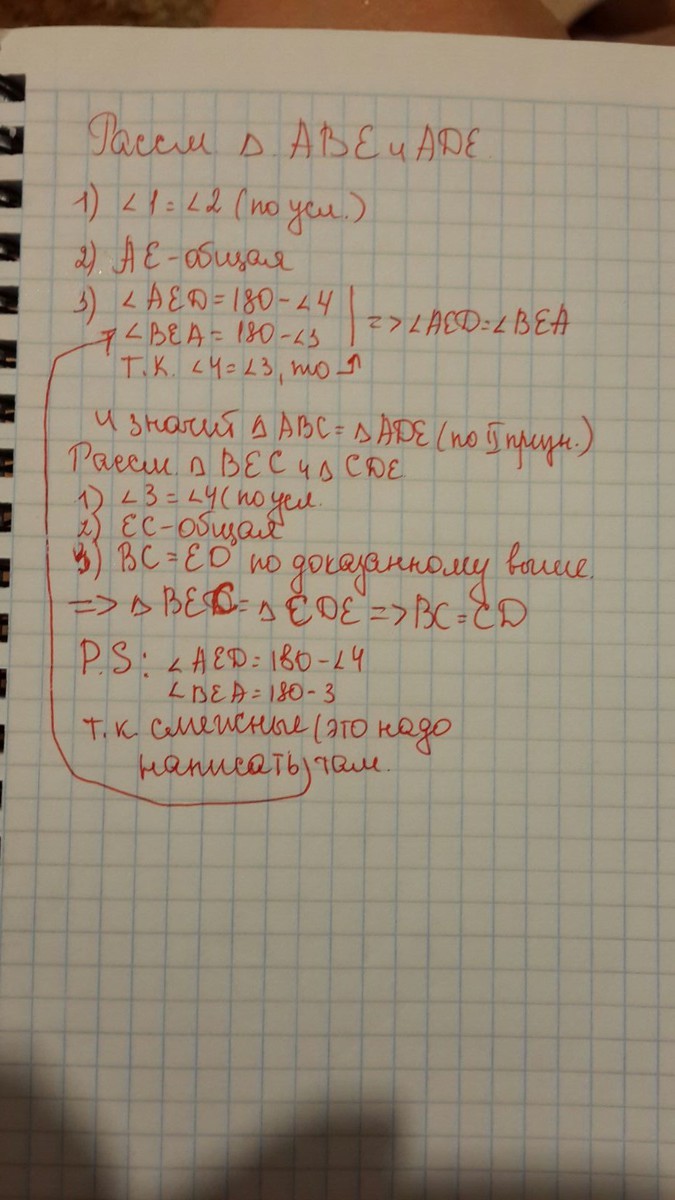 Рассм △ ABE и ADE.
1) ∠1 = ∠2 (по усл.)
2) AE - общая
3) ∠AED = 180 - ∠4
∠BEA = 180 - ∠3
=> ∠AED = ∠BEA
т.к. ∠4 = ∠3, то ↑
и значит △ ABC = △ ADE (по II призн.)
Рассм. △ BEC и △ CDE
1) ∠3 = ∠4 (по усл.
2) EC - общая
3) BC = ED по доказанному выше.
=> △ BEC = △ CDE => BC = CD
P.S: ∠AED = 180 - ∠4
∠BEA = 180 - 3
т.к. смежные (это надо
написать) там.